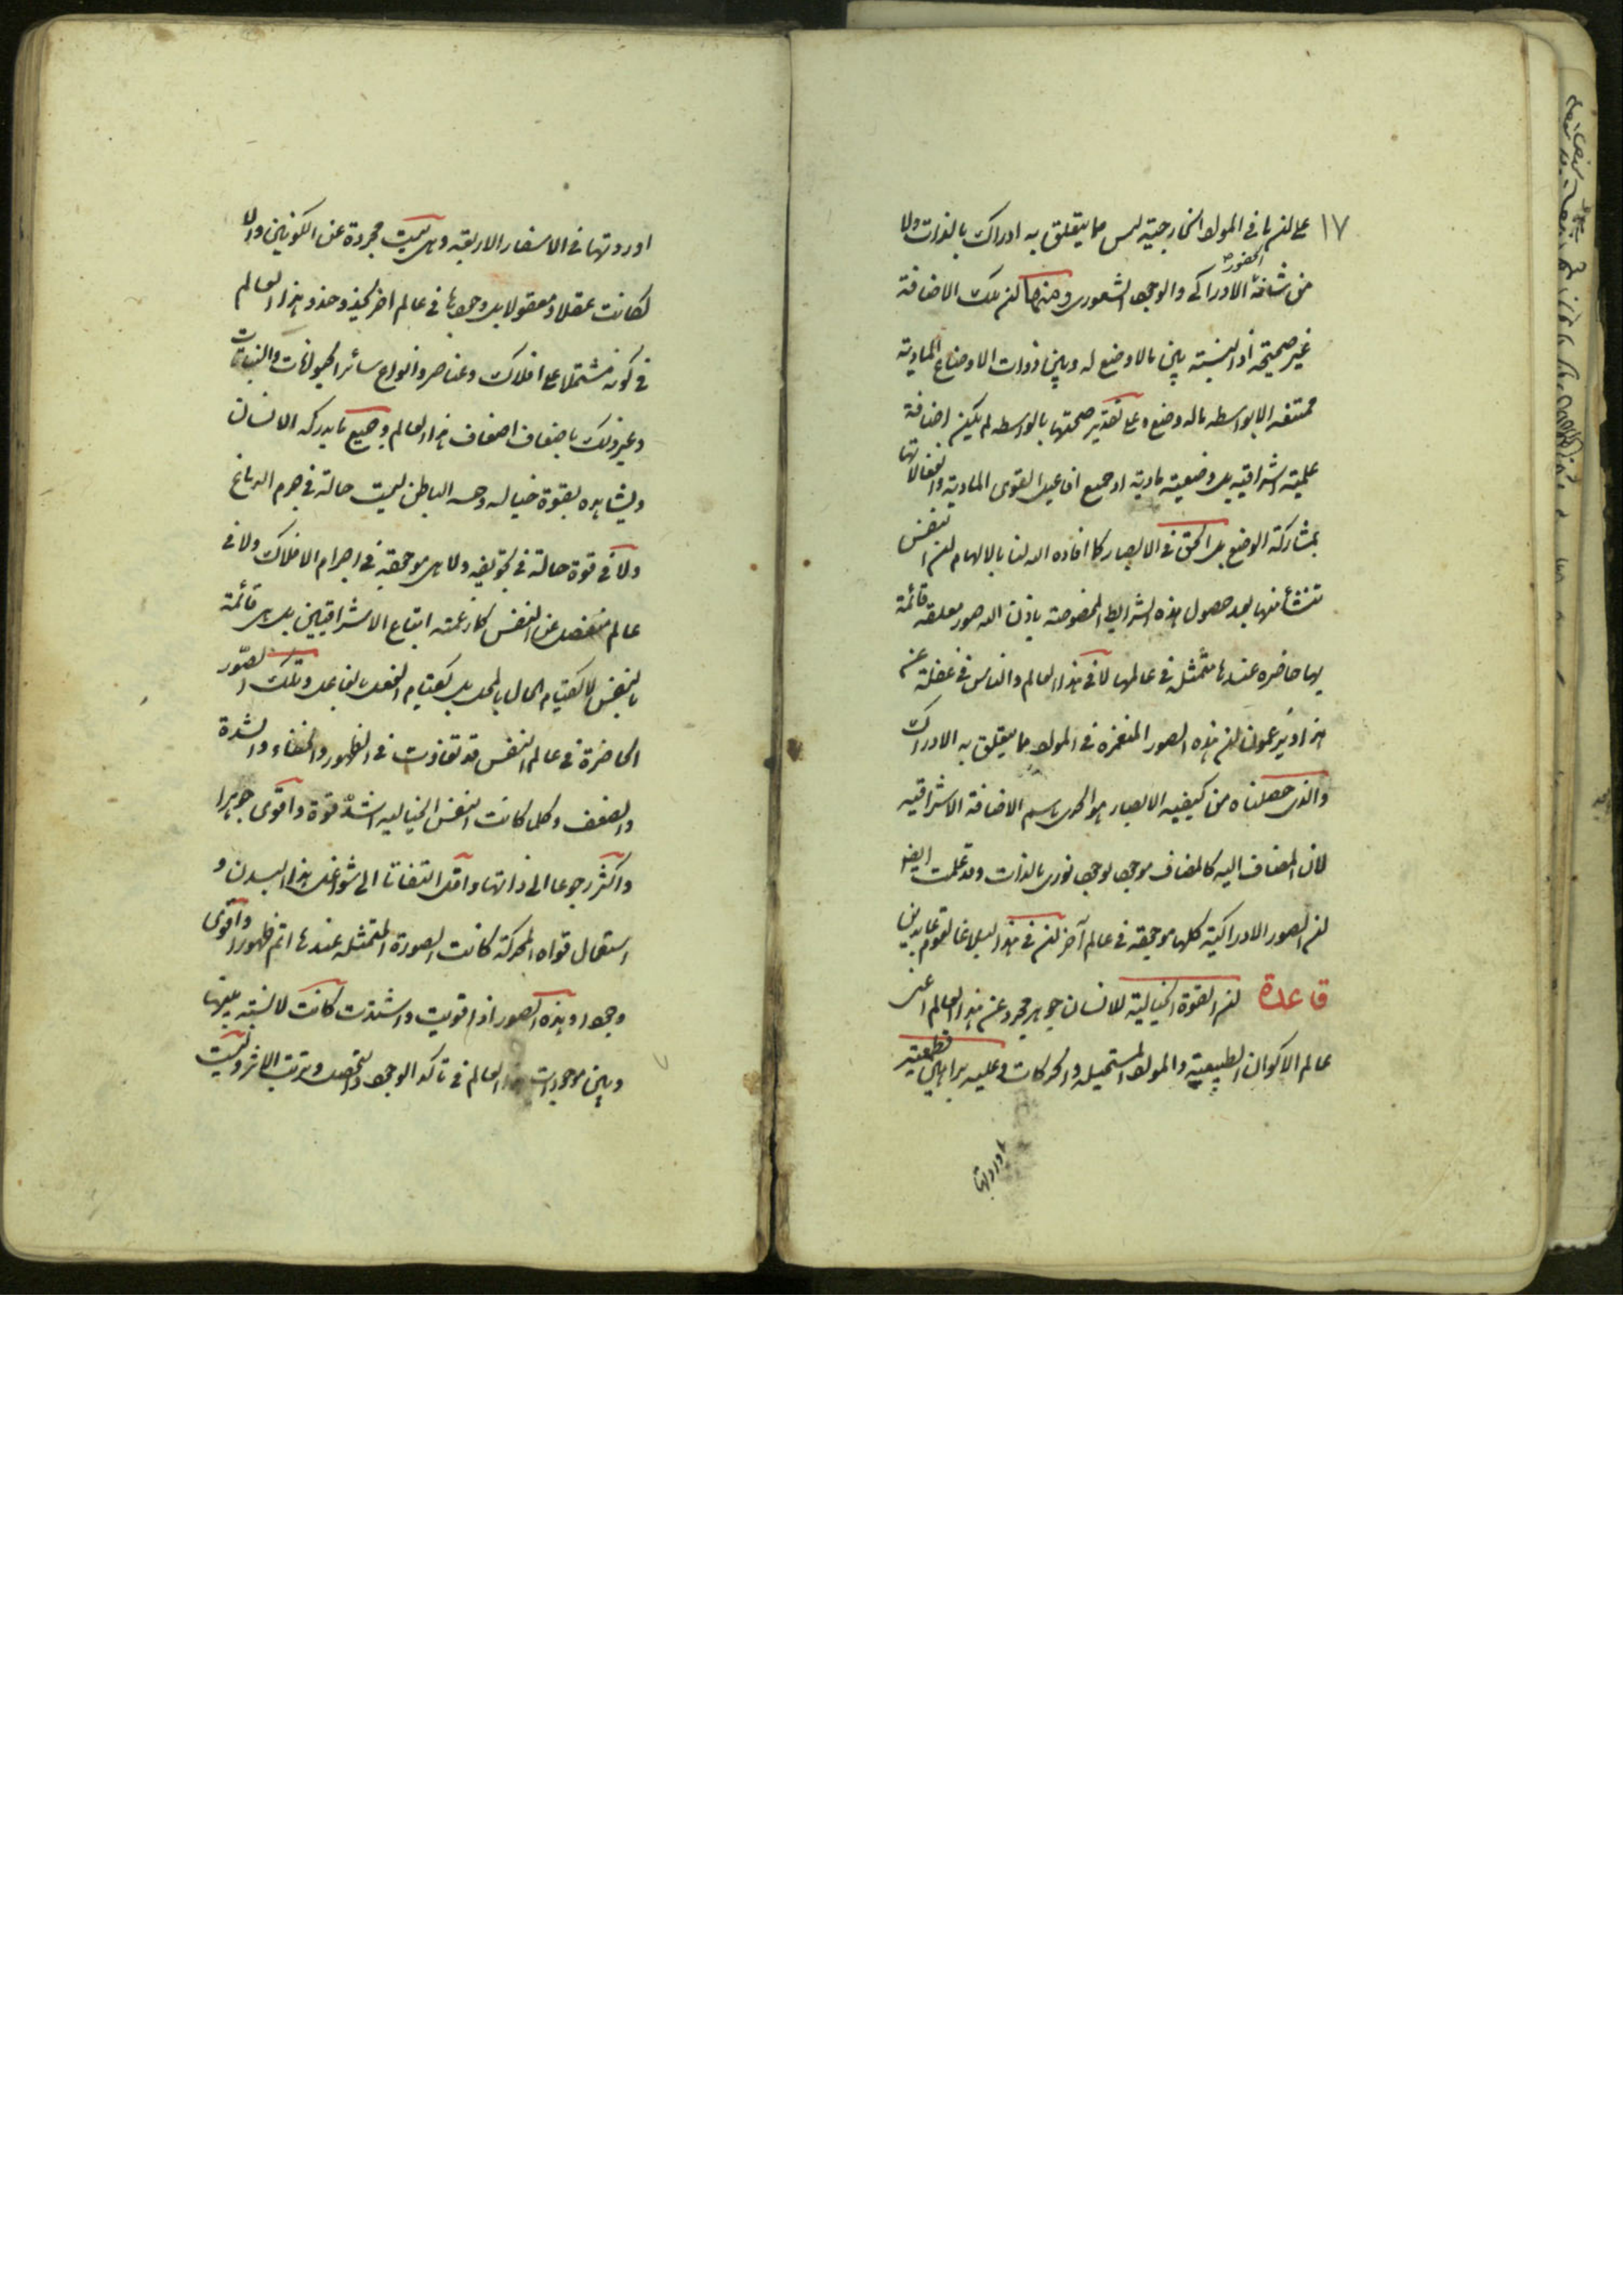 ١٧
على ان ما فى المواد الخارجية ليس مما يتعلق به ادراك بالذات ولا
من شأنه الحضور الادراكى والوجود الشعورى ومنها ان تلك الاضافة
غير صحيحة اذ النسبة بين ما لا وضع له وبين ذوات الاوضاع المادية
ممتنعه الا بواسطه ما له وضع وعلى تقدير صحتها بالواسطه لم يكن اضافة
علمية اشراقيه بل وضعية مادية اذ جميع افاعيل القوى المادية وانفعالاتها
بمشاركة الوضع بل الحق فى الابصار كما افاده الله لنا بالالهام ان النفس
تنشأ منها بعد حصول هذه الشرايط المخصوصة باذن الله صور معلقه قائمة
بها حاضره عندها متمثلة فى عالمها لا فى هذا العالم والناس فى غفلة عن
هذا ويزعمون ان هذه الصور المنغمزه فى المواد مما يتعلق به الادراك
والذى حصلناه من كيفيه الابصار هو الحرى باسم الاضافة الاشراقيه
لان المضاف اليه كالمضاف موجود بوجود نورى بالذات وقد علمت ايضا
ان الصور الادراكية كلها موجودة فى عالم آخر ان فى هذا لبلاغا لقوم عابدين
قاعدة ان القوة الخيالية للانسان جوهر مجرد عن هذا العالم اعنى
عالم الاكوان الطبيعية والمواد المستحيلة والحركات وعليه براهين قطعيته
اوردتها
اوردتها فى الاسفار الاربعه وهى ليست مجردة عن الكونين والا
لكانت عقلا ومعقولا بل وجودها فى عالم اخر يحذو حذو هذا العالم
فى كونه مشتملا على افلاك وعناصر وانواع سائر الحيوانات والنباتات
وغير ذلك باضعاف اضعاف هذا العالم وجميع ما يدركه الانسان
ويشاهده بقوة خياله وحسه الباطن ليست حالة فى جرم الدماغ
ولا فى قوة حالة فى تجويفه ولا هى موجودة فى اجرام الافلاك ولا فى
عالم منفصل عن النفس كما زعمته اتباع الاشراقيين بل هى قائمة
بالنفس لا كقيام الحال بالمحل بل كقيام الفعل بالفاعل وتلك الصور
الحاضرة فى عالم النفس قد تفاوت فى الظهور والخفاء والشدة
والضعف وكلما كانت النفس الخياليه اشد قوة واقوى جوهرا
واكثر رجوعا الى ذاتها واقل التفاتا الى شواغل هذا البدن و
استعمال قواه المحركة كانت الصورة المتمثله عندها اتم ظهورا واقوى
وجودا وهذه الصور اذا قويت واشتدت كانت لا نسبة بينها
وبين موجودات هذا العالم فى تاكد الوجود والتحصل وترتب الاثر وليست